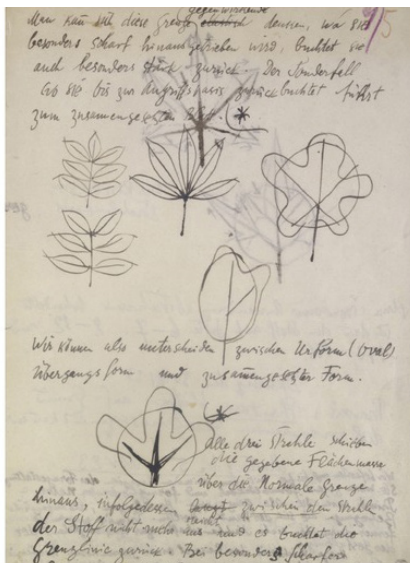 gegenwirkende
Man kann sich diese Grenze denken, wo sie
besonders scharf hinausgetrieben wird, buchtet sie
auch besonders stark zurück. Der Sonderfall
wo sie bis zur Angriffsbasis zurückbuchtet führt
zum zusammengesetzten Blatt.
Wir können also unterscheiden zwischen Urform (Oval)
Übergangsform und zusammengesetzter Form.
Alle drei Strahlen schieben
die gegebene Flächenmasse
über die Normale Grenze
hinaus, infolgedessen zwischen den Strahlen
der Stoff nicht mehr aus und es buchtet die
Grenzlinie zurück. Bei besonders scharfer